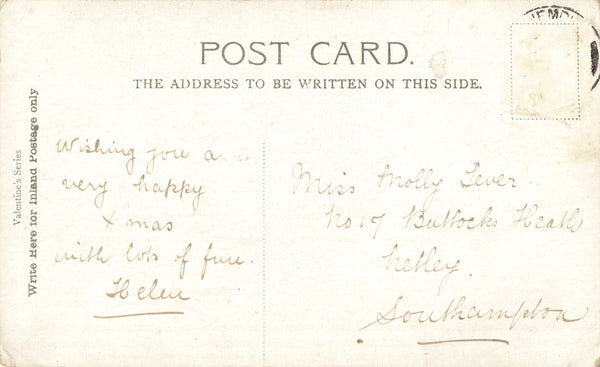 POST CARD.
THE ADDRESS TO BE WRITTEN ON THIS SIDE.
Valentine's Series
Write Here for Inland Postage only
Wishing you a
very happy
Xmas
with lots of fun.
Helen
Miss Molly Lever
No 17 Buttocks Heath
Netley.
Southampton